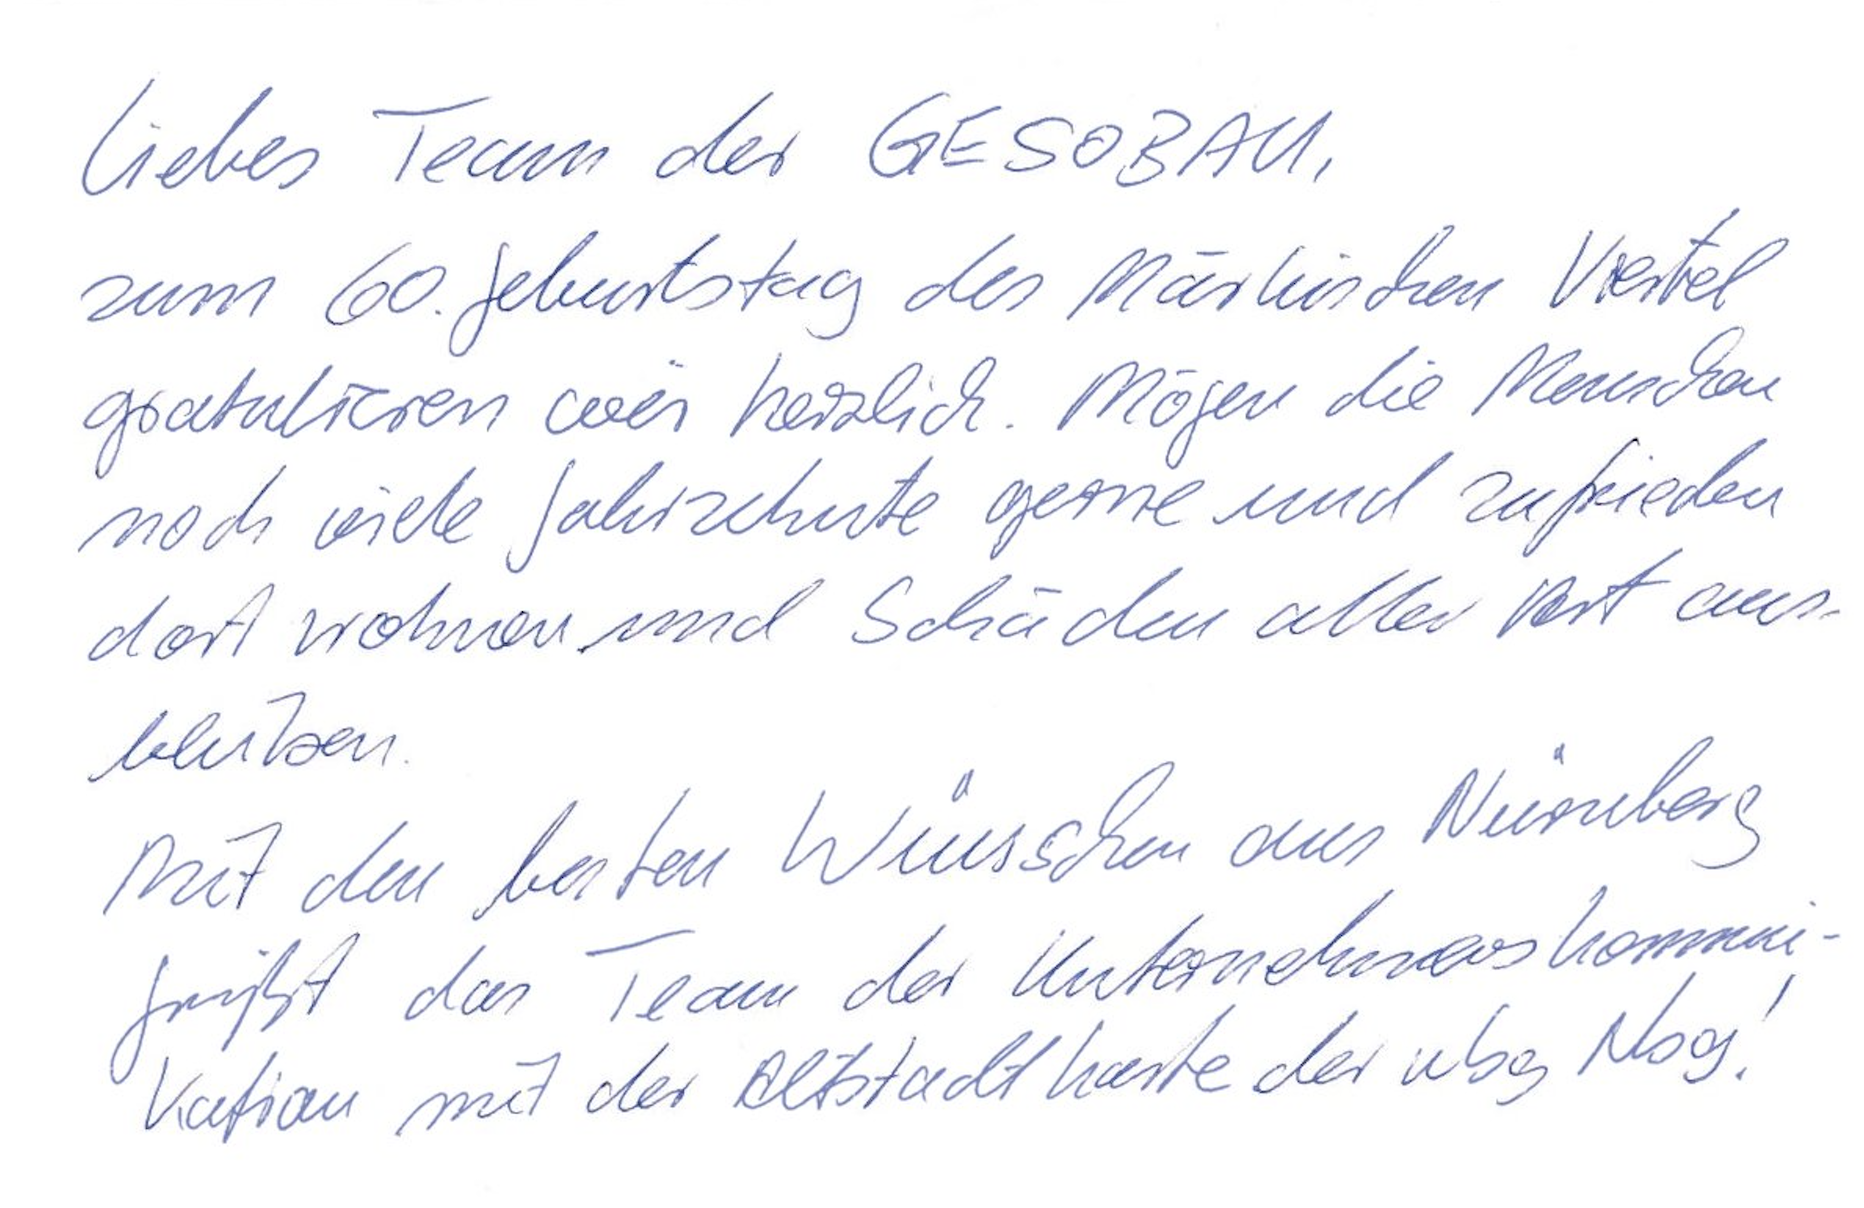 Liebes Team der GESOBAU,
zum 60. Geburtstag des Märkischen Viertel
gratulieren wir herzlich. Mögen die Menschen
noch viele Jahrzehnte gerne und zufrieden
dort wohnen und Schäden aller Art aus-
bleiben.
Mit den besten Wünschen aus Nürnberg
grüßt das Team der Unternehmenskommuni-
kation mit der Altstadtkarte der wbg Nbg!